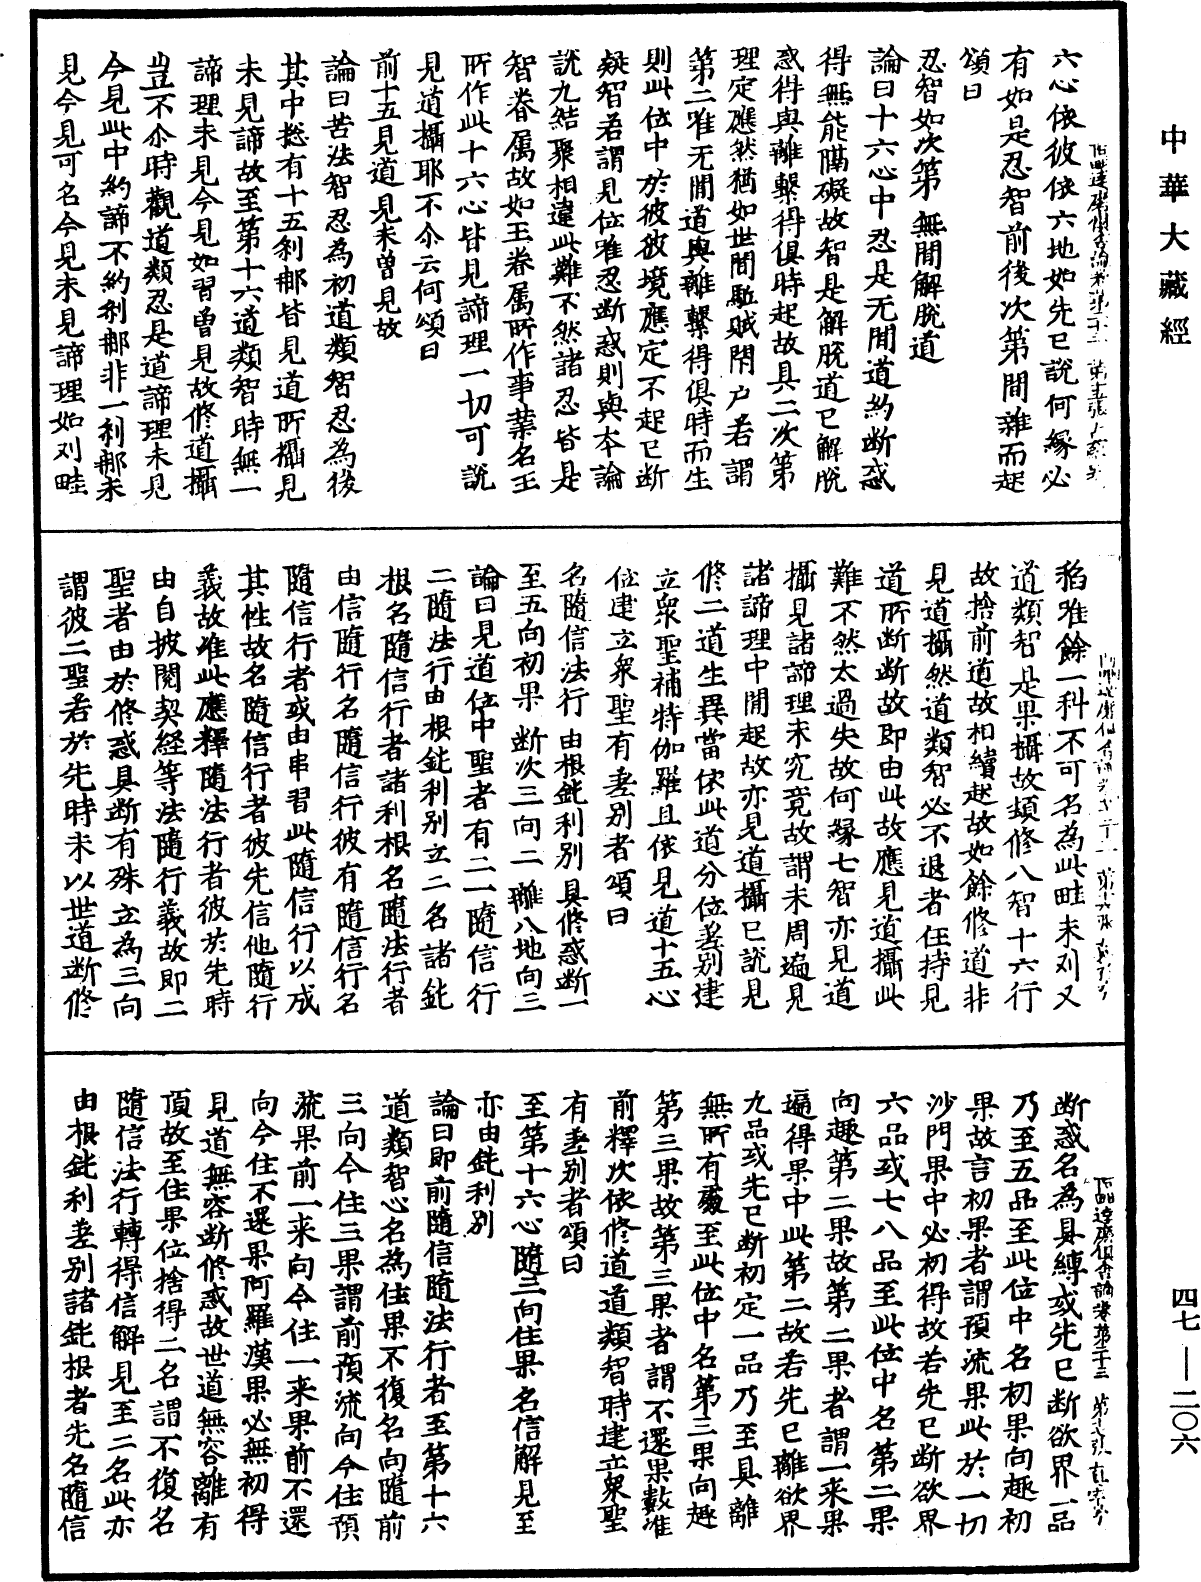 中華大藏經
六心依彼依六地如先已說何緣必
有如是忍智前後次第間雜而起
頌曰
忍智如次第 無間解脫道
論曰十六心中忍是无間道約斷惑
得無能隔礙故智是解脫道已解脫
惑得與離繫得俱時起故具二次第
理定應然猶如世間駈賊閇户若謂
第二唯无間道與離繫得俱時而生
則此位中於彼彼境應定不起已斷
疑智若謂見位唯忍斷惑則與本論
說九結聚相違此難不然諸忍皆是
智眷属故如王眷属所作事業名王
所作此十六心皆見諦理一切可說
見道攝耶不尒云何頌曰
前十五見道 見未曾見故
論曰苦法智忍為初道類智忍為後
其中揔有十五刹那皆見道所攝見
未見諦故至第十六道類智時無一
諦理未見今見如習曾見故修道攝
豈不尒時觀道類忍是道諦理未見
今見此中約諦不約刹那非一刹那未
見今見可名今見未見諦理如刈畦
稻唯餘一科不可名為此畦未刈又
道類智是果攝故頓修八智十六行
故捨前道故相續起故如餘修道非
見道攝然道類智必不退者任持見
道所斷斷故即由此故應見道攝此
難不然太過失故何緣七智亦見道
攝見諸諦理未究竟故謂未周遍見
諸諦理中間起故亦見道攝已說見
修二道生異當依此道分位差別建
立衆聖補特伽羅且依見道十五心
位建立衆聖有差別者頌曰
名隨信法行 由根鈍利別 具修惑斷一
至五向初果 斷次三向二 離八地向三
論曰見道位中聖者有二一隨信行
二隨法行由根鈍利別立二名諸鈍
根名隨信行者諸利根名隨法行者
由信隨行名隨信行彼有隨信行名
隨信行者或由串習此隨信行以成
其性故名隨信行者彼先信他隨行
義故准此應釋隨法行者彼於先時
由自披閱契經等法隨行義故即二
聖者由於修惑具斷有殊立為三向
謂彼二聖若於先時未以世道斷修
斷惑名為具縛或先已斷欲界一品
乃至五品至此位中名初果向趣初
果故言初果者謂預流果此於一切
沙門果中必初得故若先已斷欲界
六品或七八品至此位中名第二果
向趣第二果故第二果者謂一来果
遍得果中此第二故若先已離欲界
九品或先已斷初定一品乃至具離
無所有處至此位中名第三果向趣
第三果故第三果者謂不還果數准
前釋次依修道道類智時建立衆聖
有差別者頌曰
至第十六心 隨三向住果 名信解見至
亦由鈍利別
論曰即前隨信隨法行者至第十六
道類智心名為住果不復名向隨前
三向今住三果謂前預流向今住預
流果前一来向今住一来果前不還
向今住不還果阿羅漢果必無初得
見道無容斷修惑故世道無容離有
頂故至住果位捨得二名謂不復名
隨信法行轉得信解見至二名此亦
由根鈍利差別諸鈍根者先名隨信
四七——二〇六